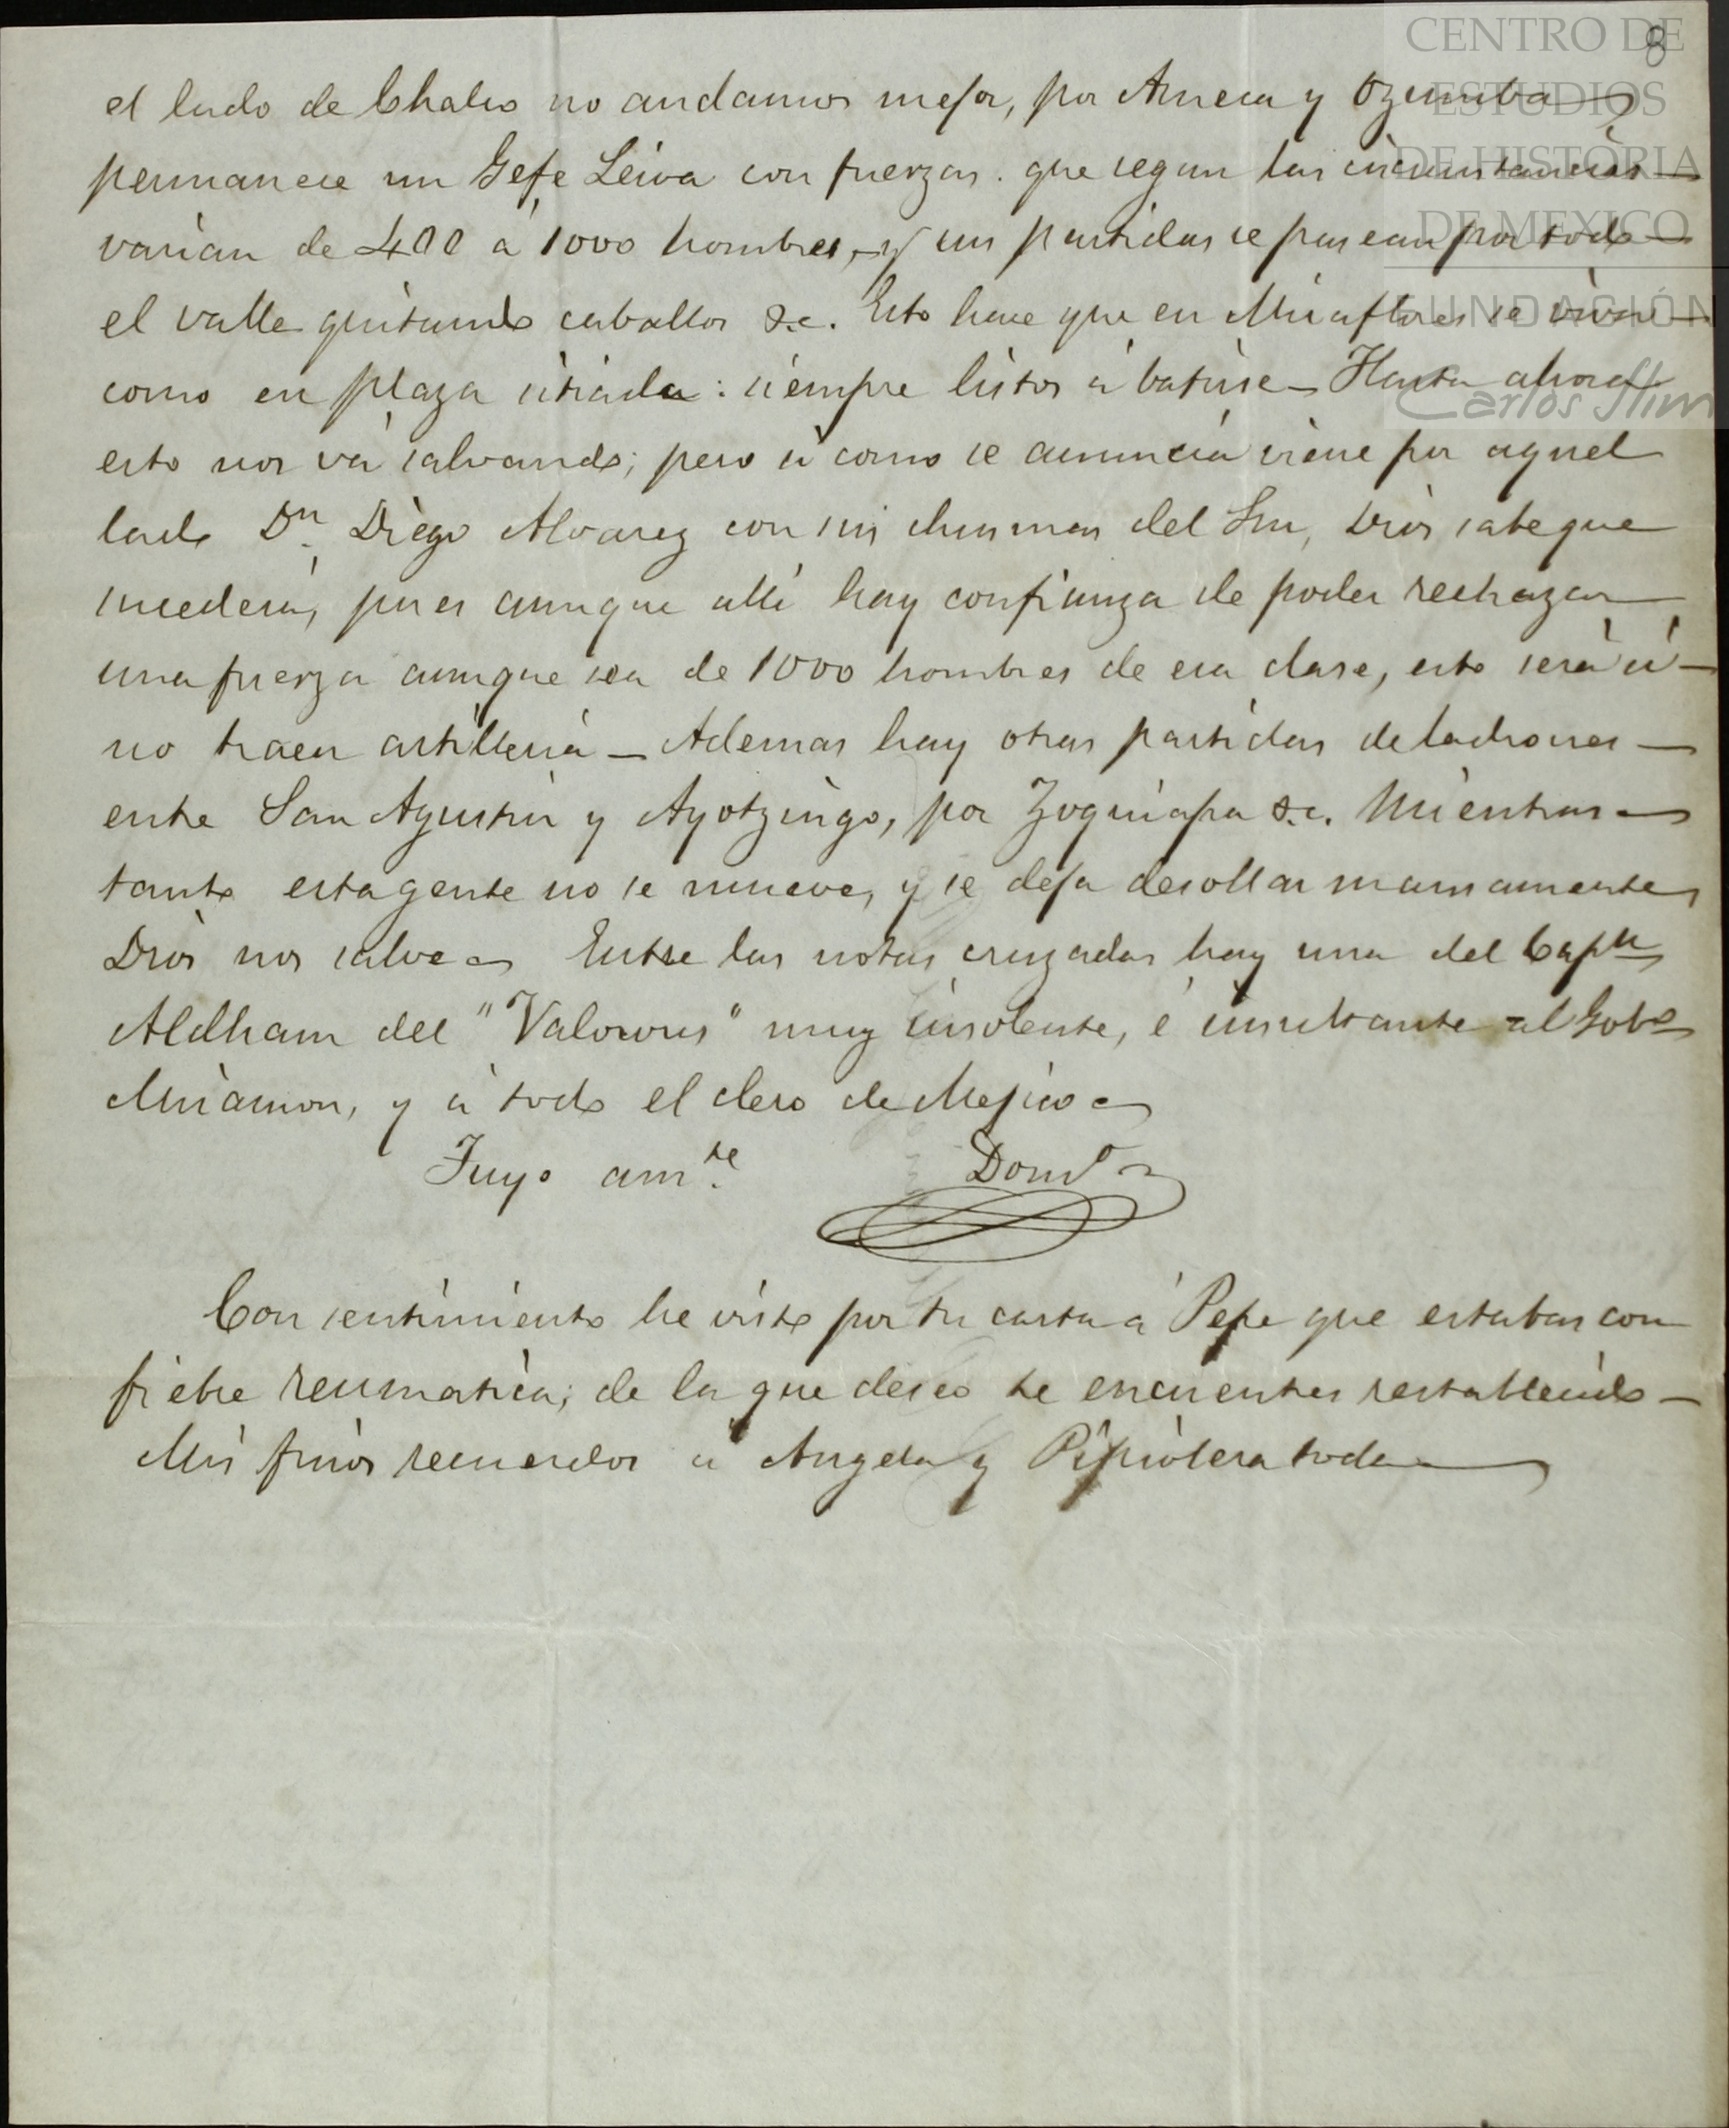 8
CENTRO DE
ESTUDIOS
DE HISTORIA
DE MEXICO
FUNDACIÓN
Carlos Slim
el lado de Chalco no andamos mejor, por Ameca y Ozumba
permanece un Gefe Leiva con fuerzas. que segun las circunstancias —
varian de 400 á 1000 hombres, y sus partidas se pasean por todo —
el valle quitando caballos &c. Esto hace que en Miraflores se vive —
como en plaza sitiada: siempre listos á batirse — Hasta ahora
esto nos vá salvando; pero si como se anuncia viene por aquel
lado Dn. Diego Alvarez con sus chusmas del Sur, Dios sabe que
sucederá, pues aunque allí hay confianza de poder rechazar
una fuerza aunque sea de 1000 hombres de esa clase, esto será si —
no traen artilleria — Ademas hay otras partidas de ladrones —
entre San Agustin y Ayotzingo, por Zoquiapa &c. Mientras —
tanto esta gente no se mueve, y se deja desollar mansamente
Dios nos salve — Entre las notas cruzadas hay una del Capn
Aldham del "Valorous" muy insolente, é insultante al Gobo
Miramon, y á todo el clero de Mejico —
Tuyo amte. Domo
Con sentimiento he visto por tu carta á Pepe que estabas con
fiebre reumatica; de la que deseo te encuentres restablecido —
Mis finos recuerdos á Angela y Pipiolera toda —